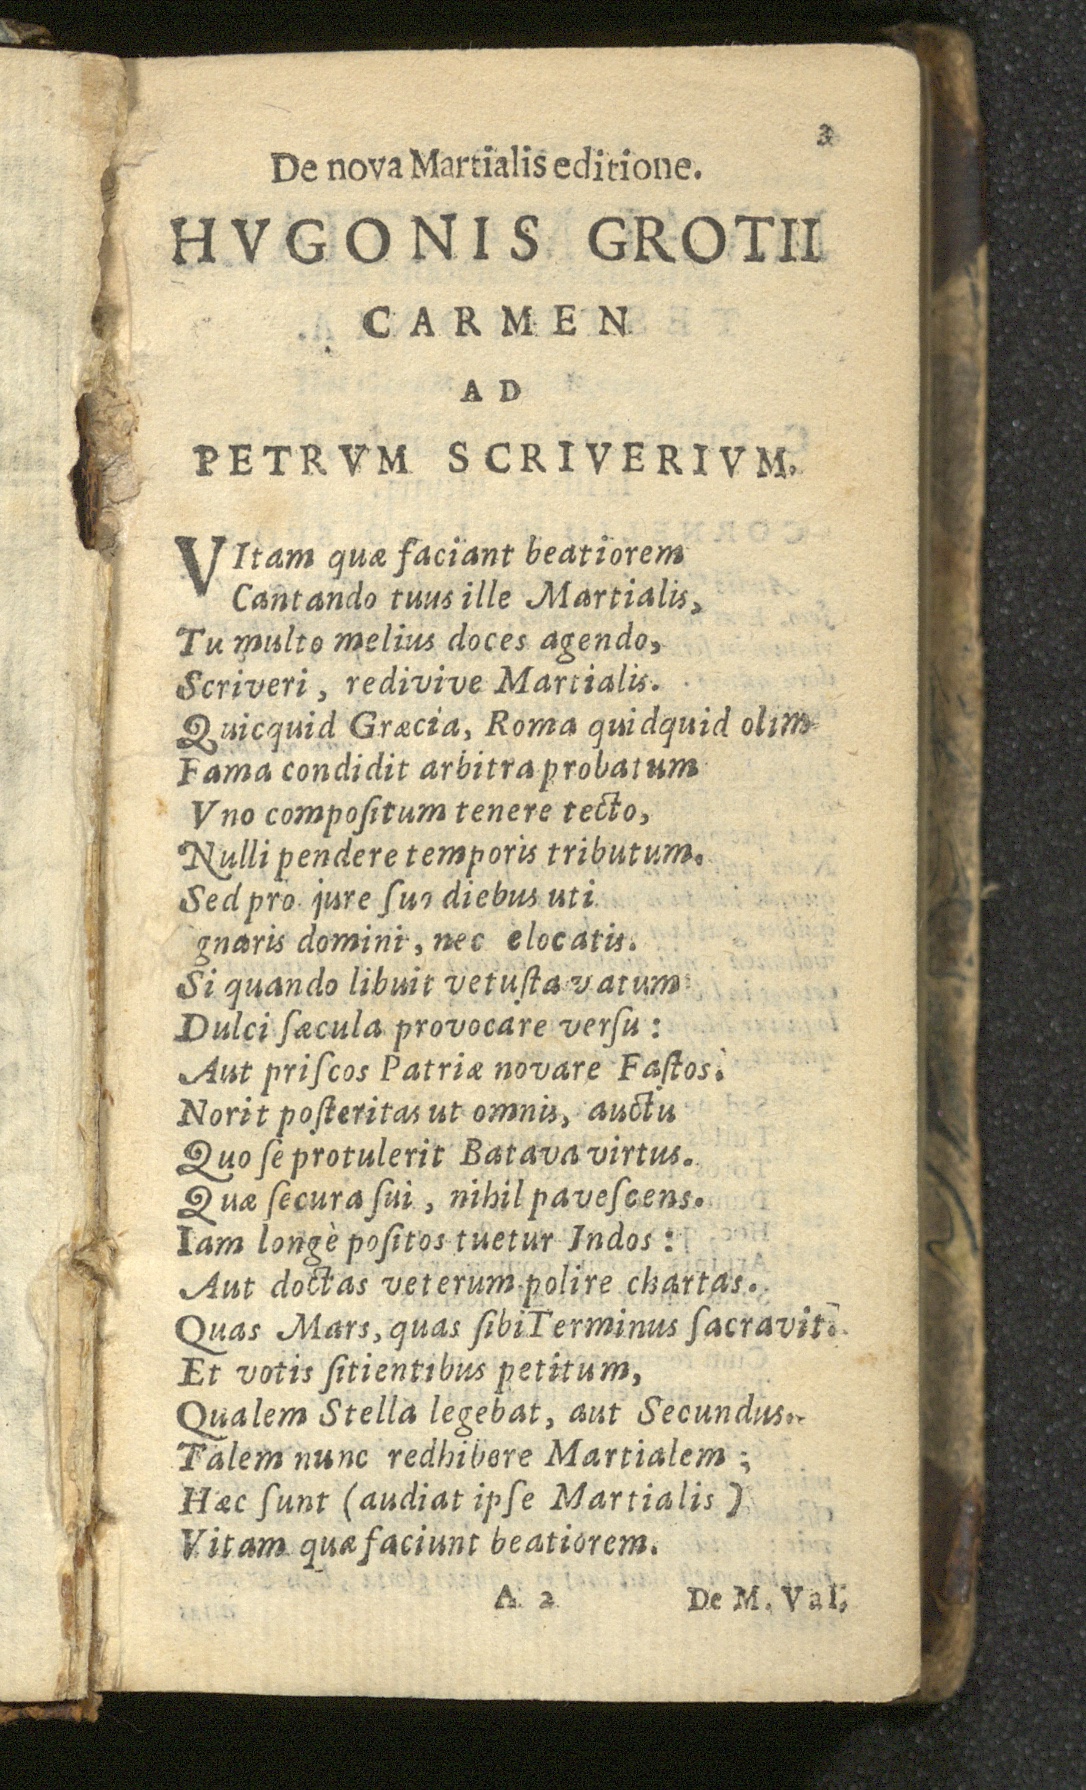 3
De nova Martialis editione.
HVGONIS GROTII
CARMEN
AD
PETRVM SCRIVERIVM.
VItam quæ faciant beatiorem
Cantando tuus ille Martialis,
Tu multo melius doces agendo,
Scriveri, redivive Martialis.
Quicquid Græcia, Roma quidquid olim
Fama condidit arbitra probatum
Vno compoſitum tenere tecto,
Nulli pendere temporis tributum.
Sed pro jure ſuo diebus uti
gnaris domini, nec elocatis.
Si quando libuit vetuſta vatum
Dulci ſæcula provocare verſu:
Aut priſcos Patriæ novare Faſtos.
Norit poſteritas ut omnis, auctu
Quo ſe protulerit Batava virtus.
Quæ ſecura ſui, nihil paveſcens.
Iam longè poſitos tuetur Indos:
Aut doctas veterum polire chartas.
Quas Mars, quas ſibi Terminus ſacravit.
Et votis ſitientibus petitum,
Qualem Stella legebat, aut Secundus.
Talem nunc redhibere Martialem;
Hæc ſunt (audiat ipſe Martialis)
Vitam quæ faciunt beatiorem.
A 2 De M. Val.